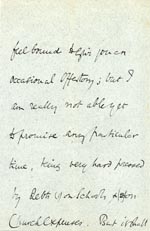 feel bound to give you an
occasional Offertory; but I
am really not able yet
to promise any particular
time, being very hard pressed
by Debts upon Schools & upon
Church Expenses. But I shall